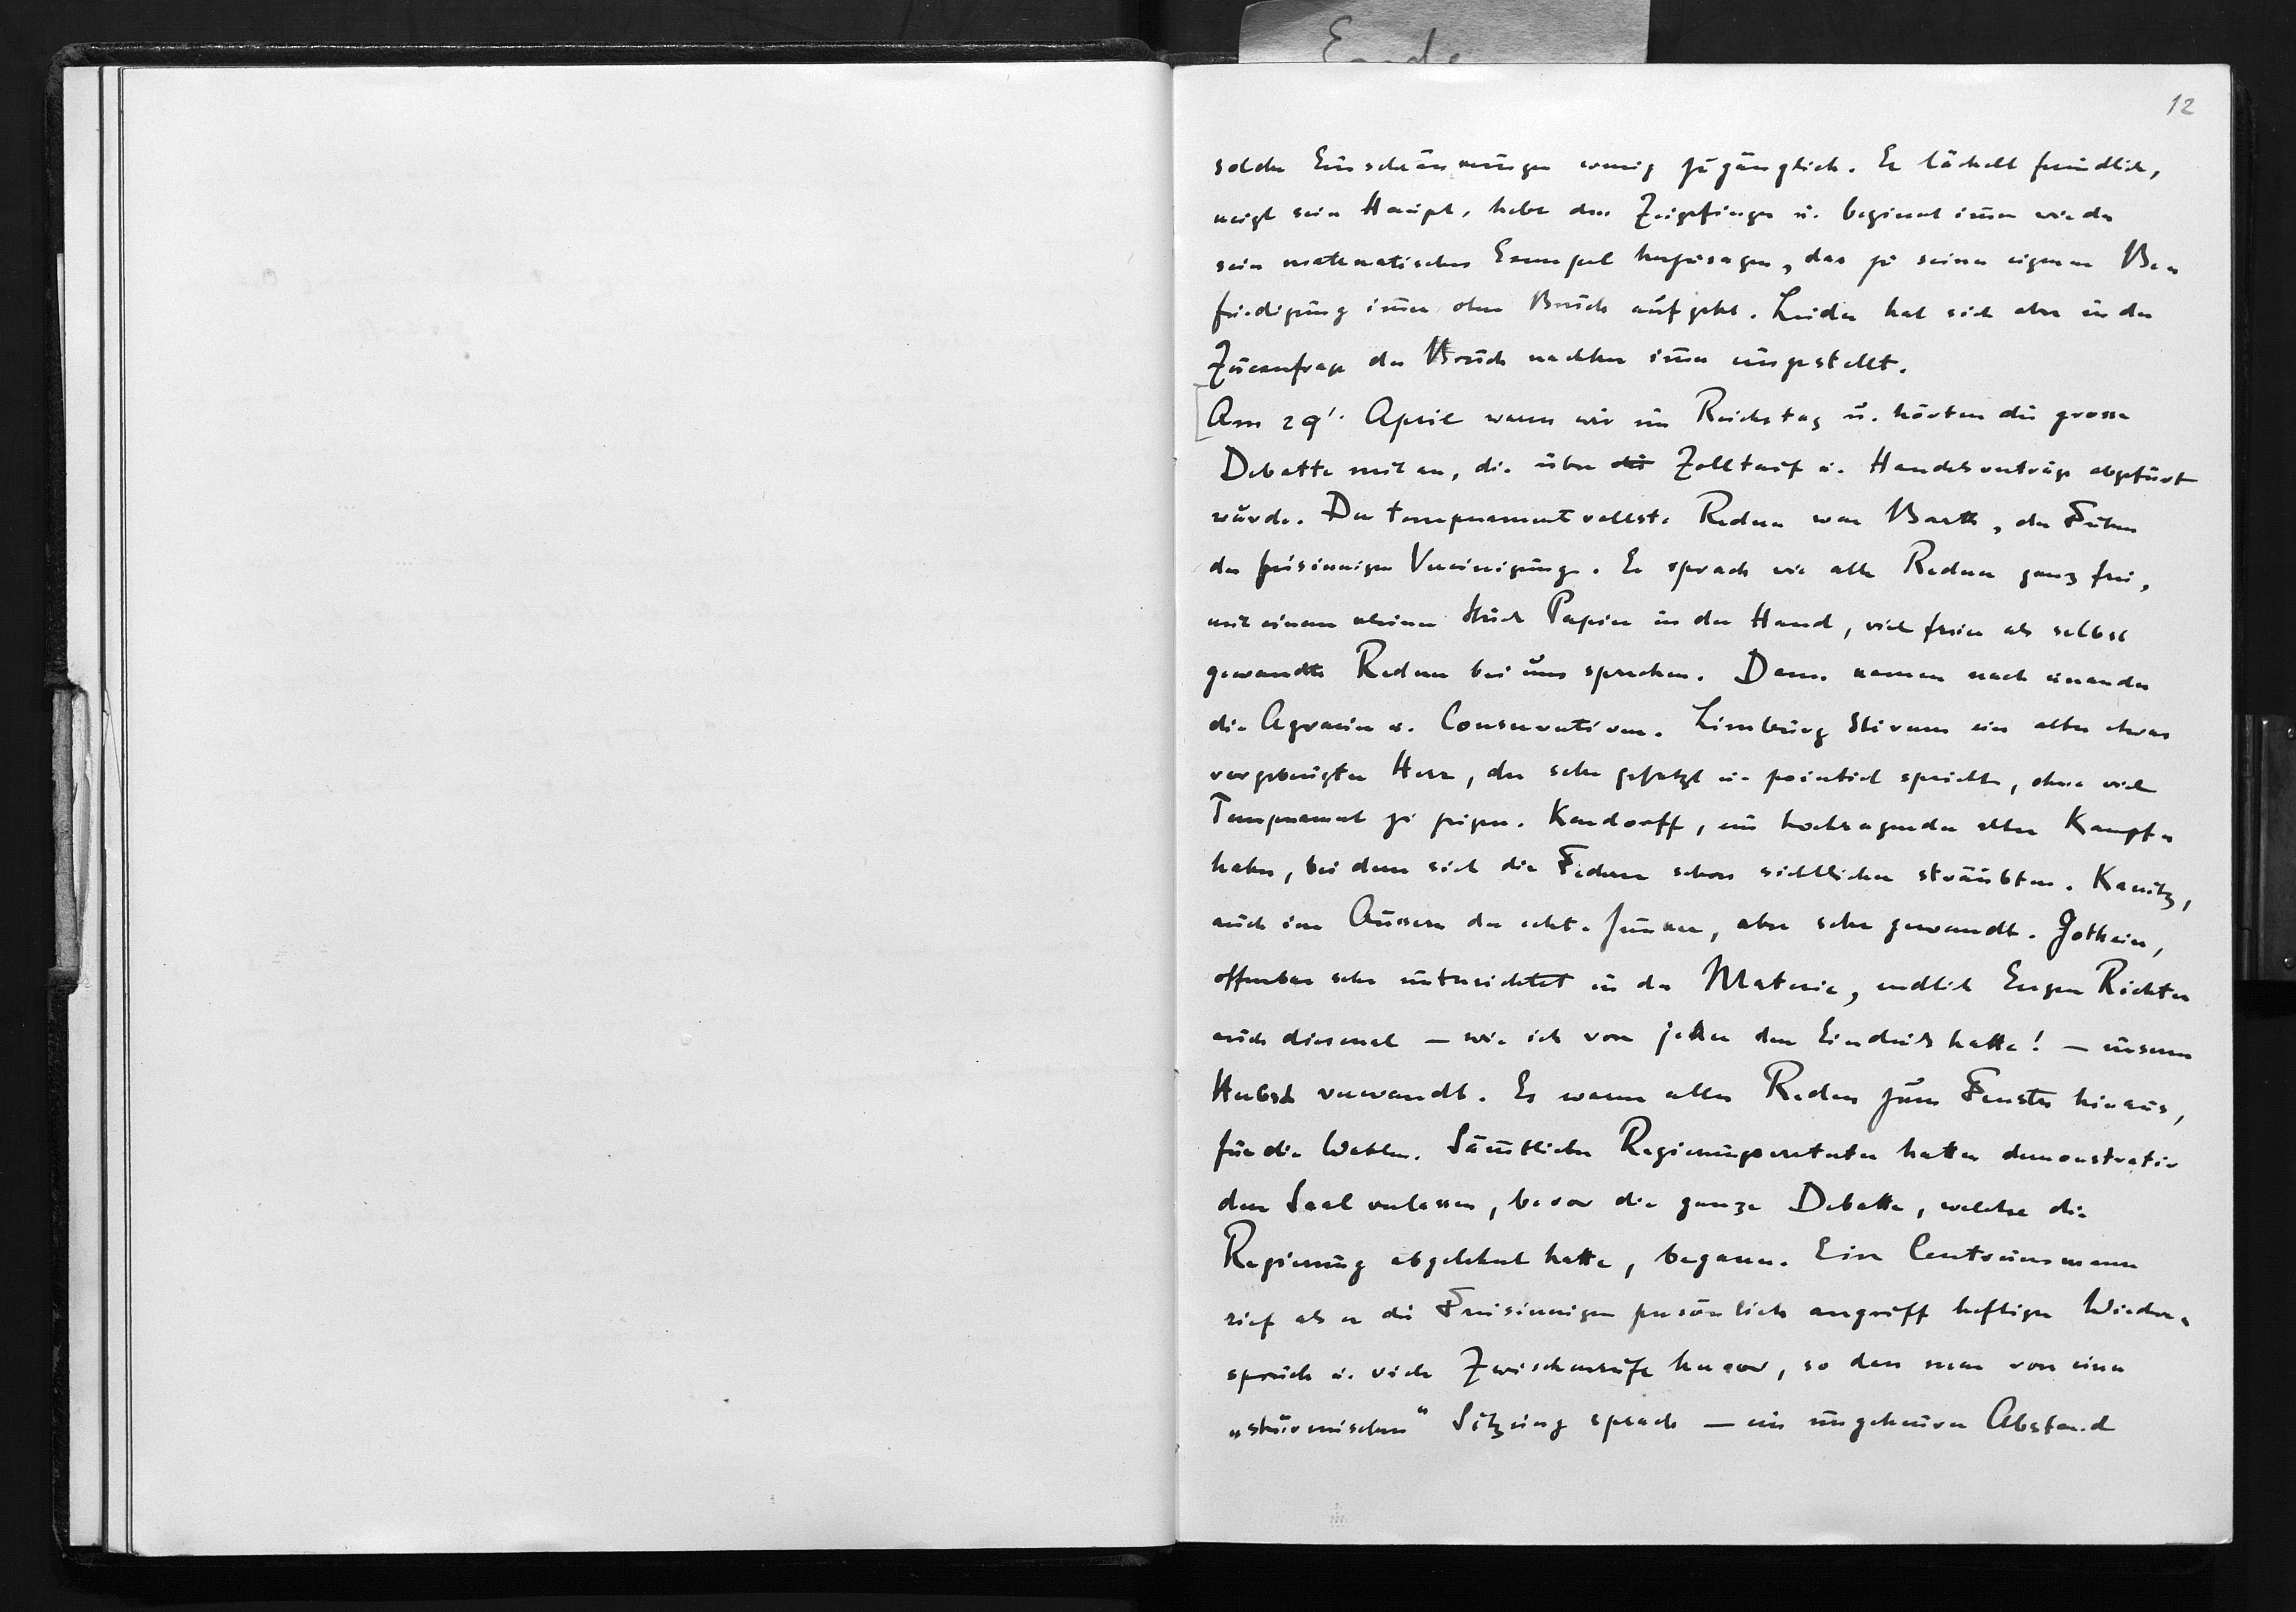 Ende
12
solchen Einschränkungen wenig zugänglich. Er lächelt freundlich,
neigt sein Haupt, hebt den Zeigefinger u. beginnt immer wieder
sein matematisches Exempel herzusagen, das zu seiner eigenen Be=
friedigung immer ohne Bruch aufgeht. Leider hat sich aber in der
der Bruch nachher immer eingestellt.
Am 29'. April waren wir im Reichstag u. hörten die grosse
Debatte mit an, die über die Zolltarif u. Handelsverträge abgefürt
wurde. Der temperamentvollste Redner war Barth, der Fürer
der freisinnigen Vereinigung. Er sprach wie alle Redner ganz frei,
mit einem kleinen Stück Papier in der Hand, viel freier als selbst
gewandte Redner bei uns sprechen. Dann kamen nach einander
die Agrarier u. Conservativen. Limburg Stirum ein alter etwas
vorgebeugter Herr, der sehr gesetzt u. pointiert spricht, ohne viel
Temperament zu zeigen. Kardorff, ein hochragender alter Kampf=
hahn, bei dem sich die Federn schon sichtlicher sträubten. Kanitz,
auch im Äussern der echte Junker, aber sehr gewandt. Gothein,
offenbar sehr unterrichtet in der Materie, endlich Eugen Richter
auch diesmal — wie ich von jeher den Eindruck hatte! — unserm
Herbst verwandt. Es waren alles Reden zum Fenster hinaus,
für die Wahlen. Sämtliche Regierungsvertreter hatten demonstrativ
den Saal verlassen, bevor die ganze Debatte, welche die
Regierung abgelehnt hatte, begann. Ein Centrumsmann
rief als er die Freisinnigen persönlich angriff heftigen Wieder=
spruch u. viele Zwischenrufe hervor, so dass man von einer
„stürmischen" Sitzung sprach — ein ungeheurer Abstand